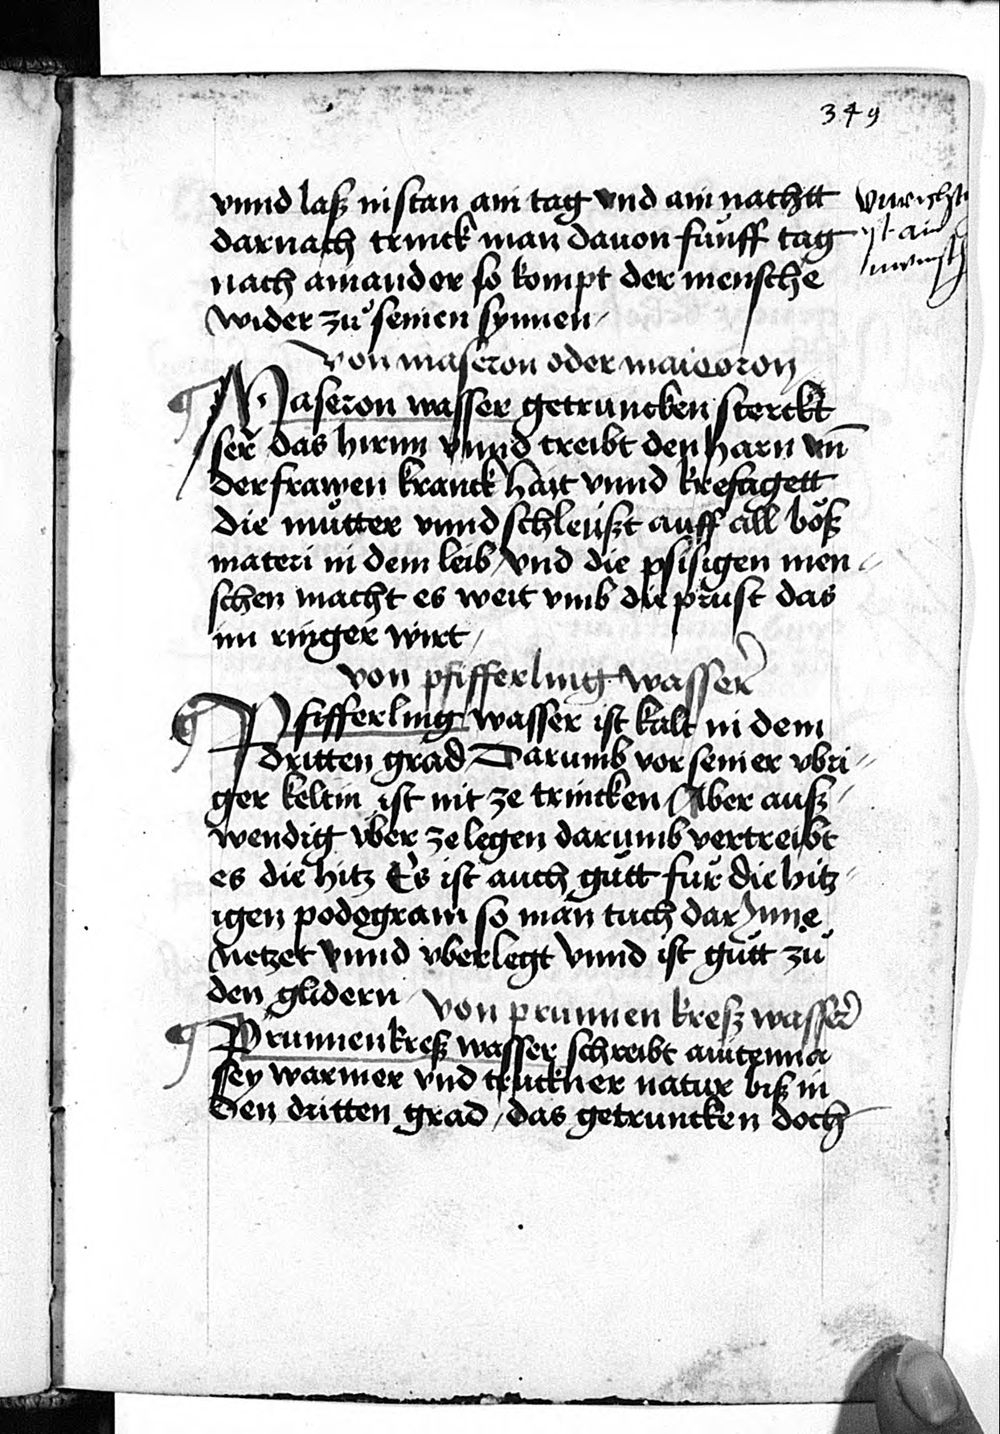 349
vnnd laß in stan ain tag vnd ain nachtt
darnach trinck man dauon fünff tag
nach ainander so kompt der mensche
wider zů seinen synnen
von maseron oder maioron
Maseron wasser getruncken sterckt
ser das hirnn vnnd treibt den harn vnd
der frawen kranckhait vnnd krefftigett
die můtter vnnd schleüßt auff all böß
materi in dem leib vnd die psisigen men
schen macht es weit vmb die prust das
im ringer wirt
von pfifferling wasser
Pfifferling wasser ist kalt in dem
dritten grad Darumb vor seiner vbri
ger keltin ist nit ze trincken Aber auß
wendig vber ze legen darumb vertreibt
es die hitz Es ist auch gůtt für die hitz
igen podegram so man tuch dar Inne
netzet vnnd vberlegt vnnd ist gůtt zů
den glidern
von prunnen kreß wasser
Prunnenkreß wasser schreibt auicenna
sey warmer vnd truckner natur biß in
den dritten grad das getruncken doch